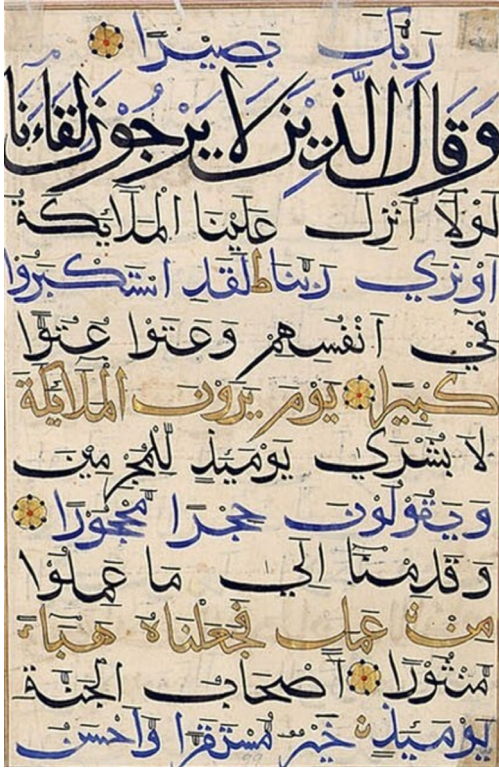 رَبُّكَ بَصِيْرًا
وَقَالَ الَّذِيْنَ لَا يَرْجُوْنَ لِقَاءَنَا
لَوْلَا اُنْزِلَ عَلَيْنَا الْمَلَائِكَةُ
اَوْ نَرٰي رَبَّنَا ط لَقَدِ اسْتَكْبَرُوْا
فِيْ اَنْفُسِهِمْ وَعَتَوْا عُتُوًّا
كَبِيْرًا يَوْمَ يَرَوْنَ الْمَلَائِكَةَ
لَا بُشْرٰي يَوْمَئِذٍ لِلْمُجْرِمِيْنَ
وَيَقُوْلُوْنَ حِجْرًا مَحْجُوْرًا
وَقَدِمْنَا اِلٰي مَا عَمِلُوْا
مِنْ عَمَلٍ فَجَعَلْنَاهُ هَبَاءً
مَنْثُوْرًا اَصْحَابُ الْجَنَّةِ
يَوْمَئِذٍ خَيْرٌ مُسْتَقَرًّا وَاَحْسَنُ